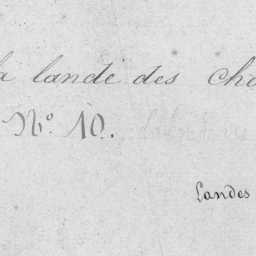 la lande des cho
N.º 10.
Landes